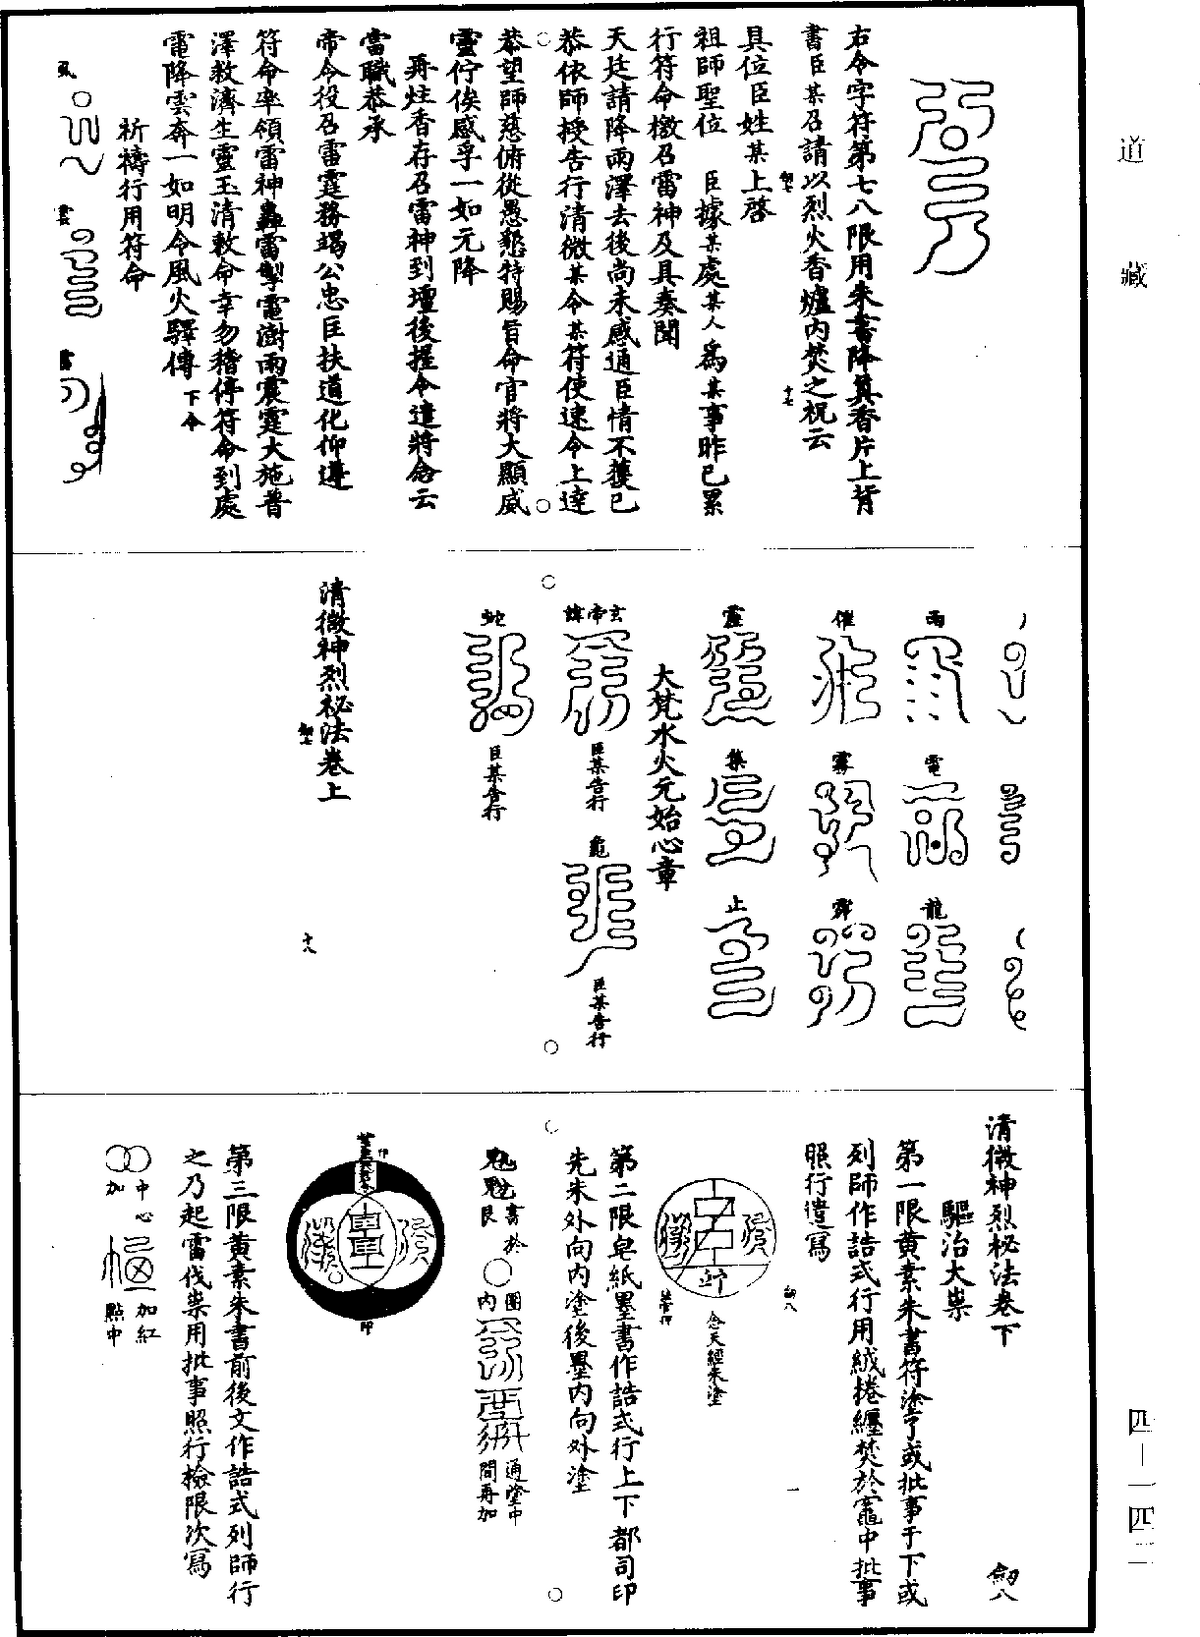 道藏
右令字符第七八限用朱書降真香片上背
書臣某召請以烈火香爐內焚之祝云
具位臣姓某上啓
祖師聖位　臣據某處某人爲某事昨已累
行符命檄召雷神及具奏聞
天廷請降雨澤去後尚未感通臣情不獲已
恭依師授告行清微某令某符使速令上達
恭望師慈俯從愚懇特賜旨命官將大顯威
靈佇俟感孚一如元降
再炷香存召雷神到壇後握令遣將念云
當職恭承
帝令役召雷霆務竭公忠匡扶道化仰遵
符命率領雷神轟雷掣電澍雨震霆大施普
澤救濟生靈玉清敕命幸勿稽停符命到處
電降雲奔一如明令風火驛傳　下令
祈禱行用符命
風
雲
雷
雨
電
龍
催
霧
霹
靈
集
止
大梵水火元始心章
玄帝諱
臣某告行
龜
臣某告行
蛇
臣某告行
清微神烈祕法卷上
十八
清微神烈祕法卷下　劒八
驅治大祟
第一限黄素朱書符塗了或批事于下或
列師作誥式行用絨捲纏焚於竈中批事
照行遣寫
劒八　一
念天經朱塗
第二限皂紙墨書作誥式行上下都司印
先朱外向內塗後墨內向外塗
書於
圈內
通瑩中
間再加
印
印
第三限黄素朱書前後文作誥式列師行
之乃起雷伐祟用批事照行檢限次寫
中心
加
加紅
點中
四—一四二